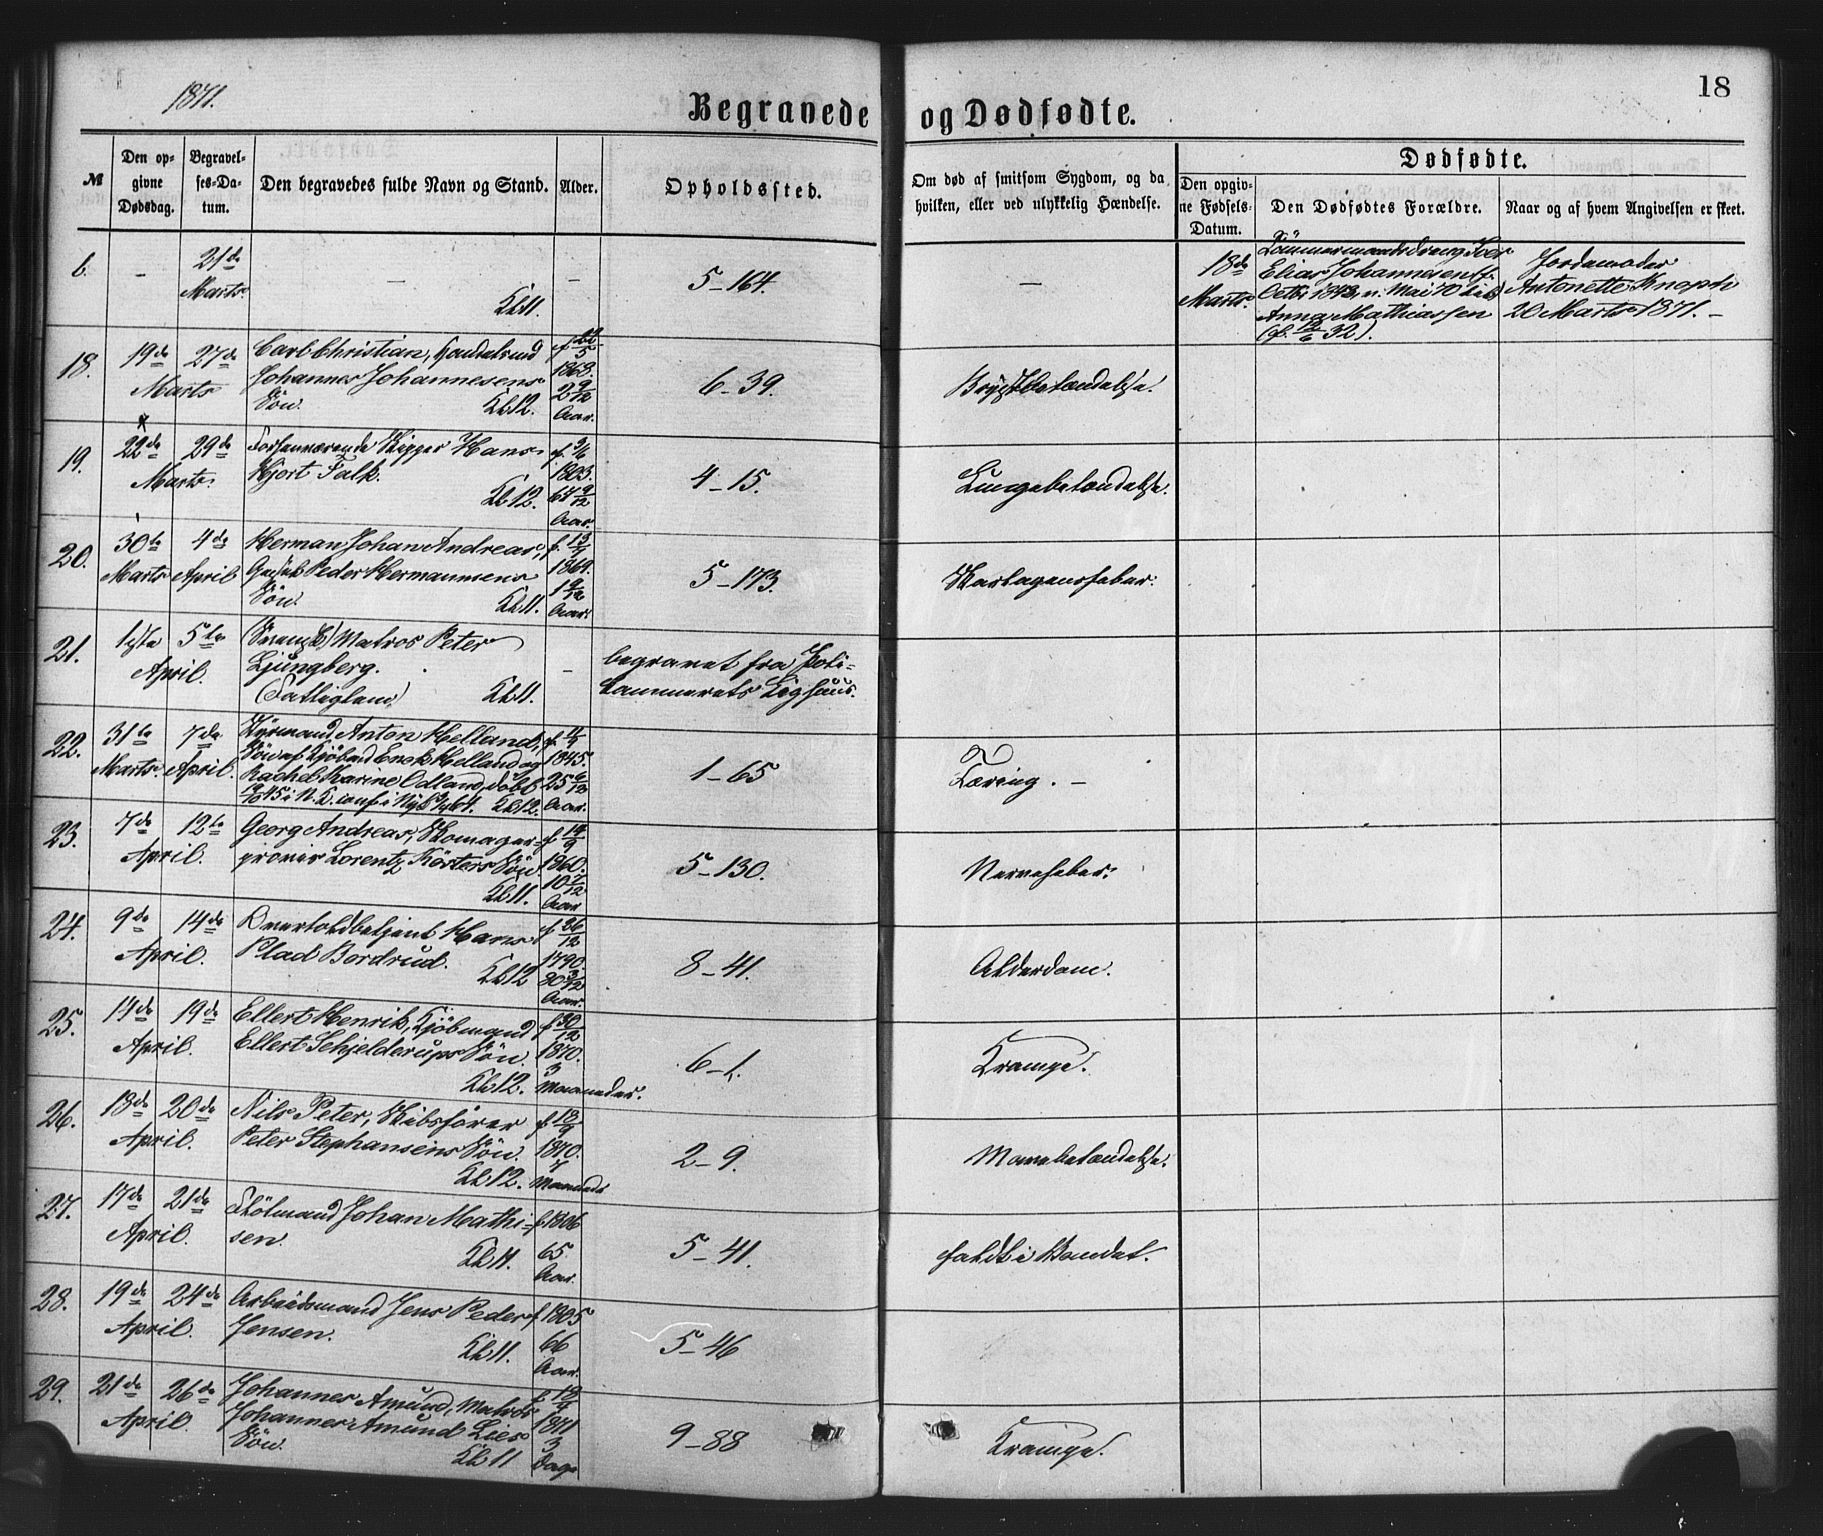 1871.
Begravede og Dødfødte.
18
№
Den op-
givne
Dødsdag.
Begravel-
ses-Da-
tum.
Den begravedes fulde Navn og Stand.
Alder.
Opholdssted.
Om død af smitsom Sygdom, og da
hvilken, eller ved ulykkelig Hændelse.
Dødfødte.
Den opgiv-
ne Fødsels-
Datum.
Den Dødfødtes Forældre.
Naar og af hvem Angivelsen er skeet.
6.
–
21de
Marts.
–
Kl. 11.
–
5–164.
–
18de
Marts.
Tømmermandsdreng Iver
Elias Johannesen (f.
Octbr 1843, n. Mai 70
Anna Mathiassen
(f. 12/6 32).
Jordemoder
Antonette Knoph
20 Marts 1871. –
18.
19de 27de
Marts
Carl Christian, Handelsmd
Johannes Johannesens
Søn. Kl. 12.
f. 22/5
1868.
2 9/12
Aar.
6–39.
Brystbetændelse.
19.
22de 29de
Marts.
Forhenværende Skipper Hans
Hjort Falk.
Kl. 12.
1803.
64 9/12
Aar.
4–15.
Lungebetændelse.
20.
30te 4de
Marts April
Herman Johan Andreas,
Peder Hermannsens
Søn. Kl. 11.
f. 13/7
1869.
1 9/12
Aar.
5–173.
Skarlagensfeber.
21.
1ste 5te
April.
(Svensk) Matros Peter
Ljungberg.
(Fattiglem) Kl. 11.
–
begravet fra Poli-
kammerets Lighuus.
22.
31te 7de
Marts. April.
Styrmand Anton Helland,
Søn af Kjøbmd Enok Helland og
Rachel Karine Odland, døbt
Kl. 12.
1845.
25 6/12
Aar.
1–65
Tæring. –
23.
7de 12te
April.
Georg Andreas, Skomager-
Lorentz Kösters Søn.
Kl. 11.
f. 19/9
1860.
10 7/12
Aar
5–130.
Nervefeber.
24.
9de 14de
April.
Overtoldbetjent Hans
Plad Bordrud.
Kl. 12
f. 26/12
1790.
80 3/12
Aar.
8–41.
Alderdom.
25.
14de 19de
April.
Ellert Henrik, Kjöbmand
Ellert Schjelderups Søn.
Kl. 12.
f. 30/12
1870.
3
Maaneder.
6–1.
Krampe.
26.
13de 20de
April.
Nils Peter, Skibsfører
Peter Stephansens Søn.
Kl. 12.
f. 18/9
1870.
7
Maaneder
2–9.
Mavebetændelse.
27.
17de 21de
April.
Flötmand Johan Mathi-
sen.
Kl. 11.
f. 1806
65.
Aar.
5–41.
faldt i Vandet.
28.
19de 24de
April.
Arbeidsmand Jens Peder
Jensen.
Kl. 11.
f. 1805
66
Aar.
5–46
29.
21de 26de
April.
Johannes Amund, Matros
Johannes Amund Lies
Søn.
Kl. 11
f. 18/4
1871
3
Dage
9–88
Krampe.